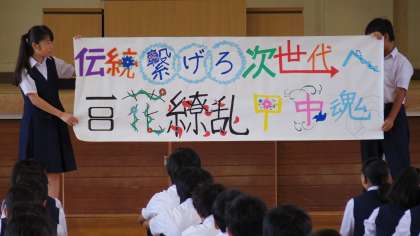 伝統繋げろ次世代へ
百花繚乱甲中魂